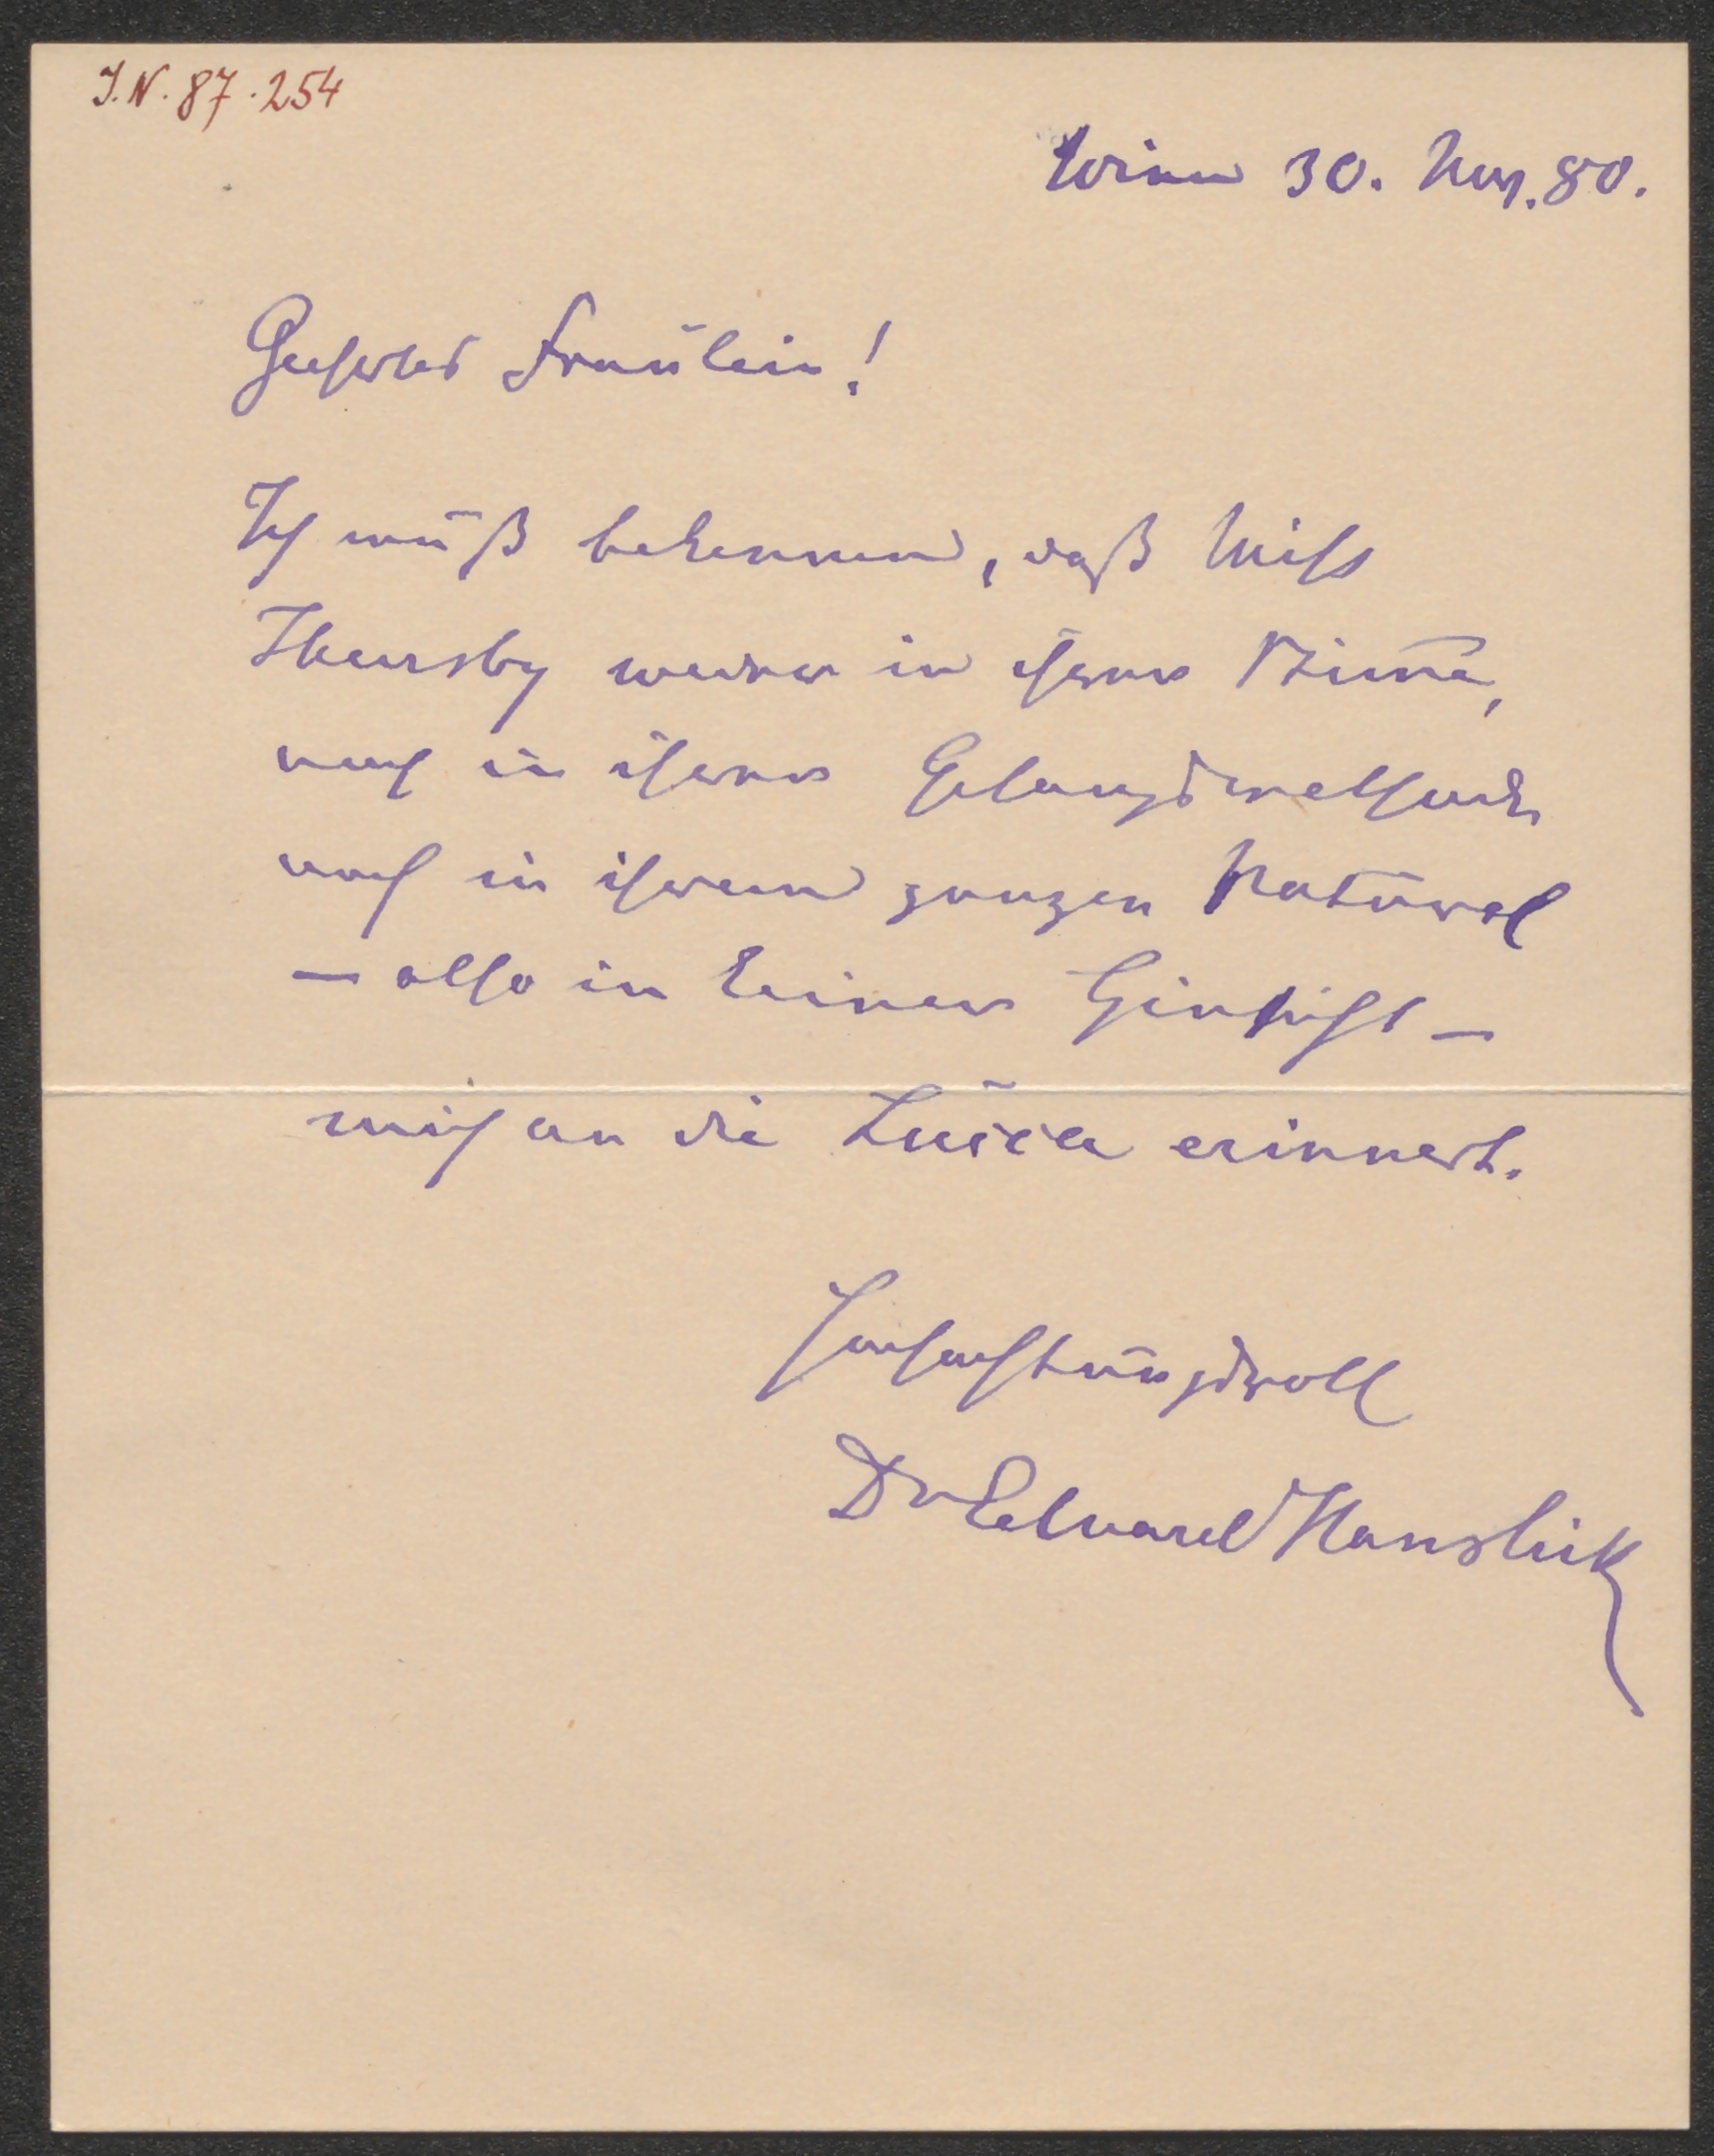 I.N. 87.254
Wien 30. Nov. 80.
Geehrtes Fräulein!
Ich muß bekennen, daß Miss
Thursby weder in ihrer Stime,
noch in ihrer Gesangsmethode
noch in ihrem ganzen Naturel
— also in keiner Hinsicht —
mich an die Lucca erinnert.
Hochachtungsvoll
Dr Eduard Hanslick